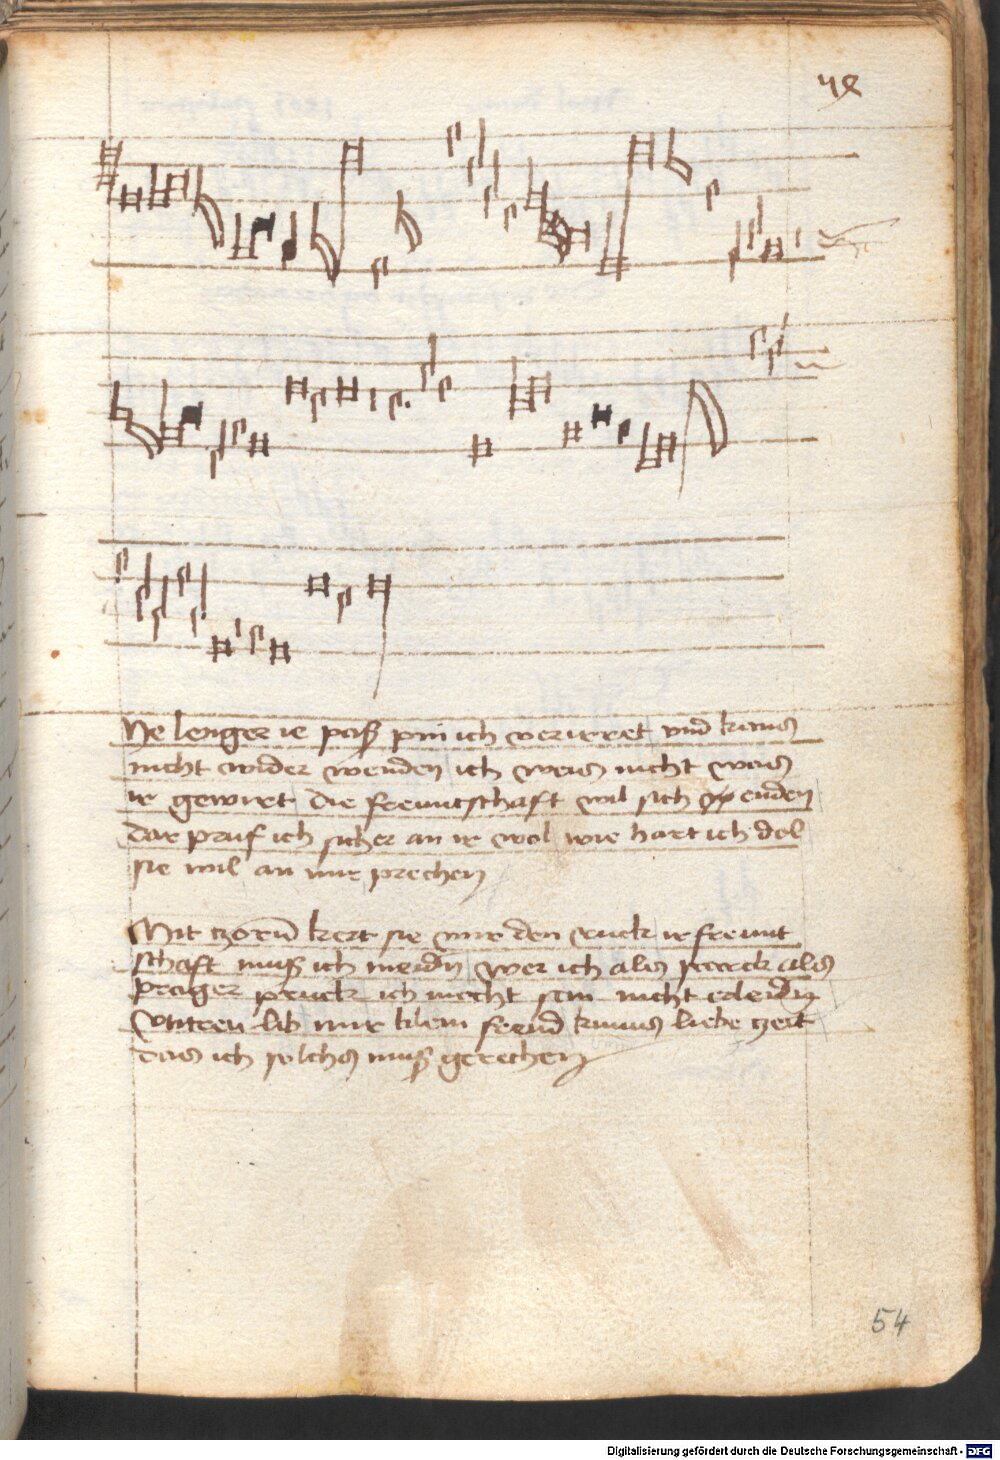 48
Je lenger ie paß pin ich verirret vnd kans
nicht wider wenden ich weis nicht was
ir gewiret die freuntschaft wil sich enden
dar pruf ich sicher an ir wol wie hart ich dol
sie wil an mir prechen
Mit czorn kert sie mir den ruck ir freunt
schaft muß ich meidn wer ich als starck als
prager pruck ich mecht sein nicht erleidn
Vntreu lib mir klein freud liebe czeit
das ich solchs muß gerechen
54
Digitalisierung gefördert durch die Deutsche Forschungsgemeinschaft - DFG